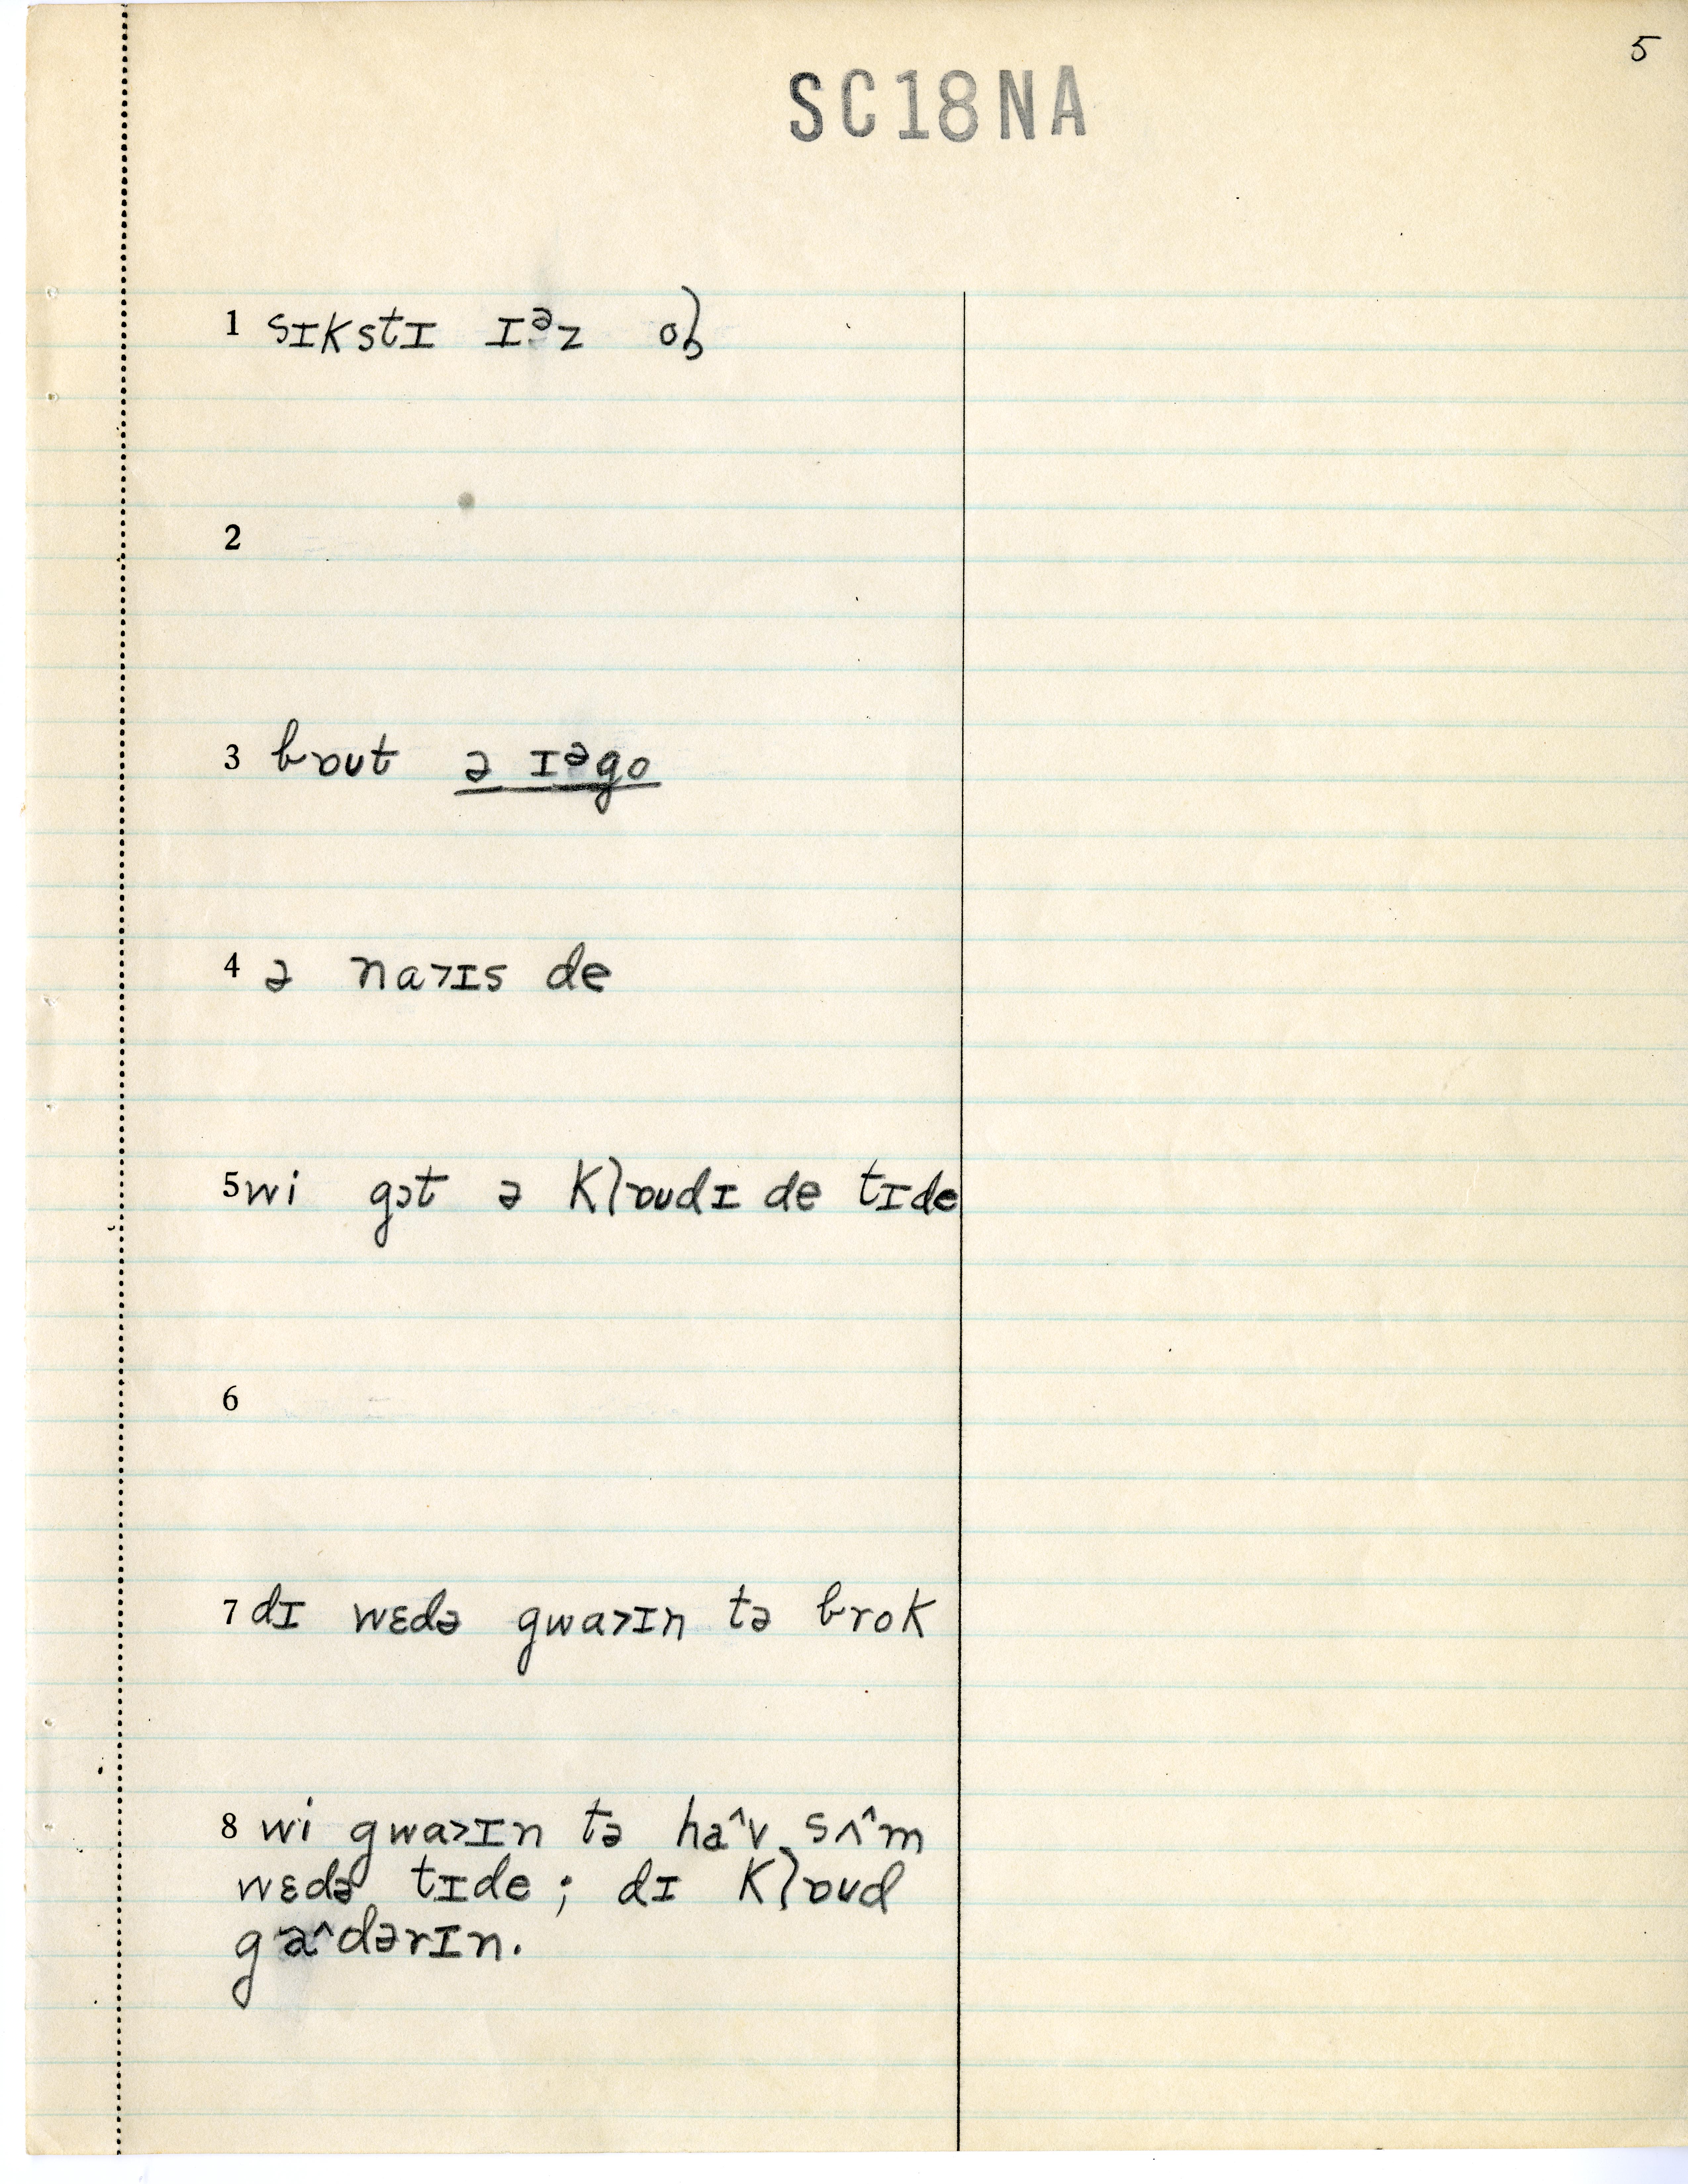 5
SC18NA
1 sɪkstɪ ɪᵊz ol
2
3 bɒut ə ɪᵊgo
4 ə na>ɪs de
5 wi gɔt ə klɒudɪ de tɪde
6
7 dɪ wɛdə gwa>ɪn tə brok
8 wi gwa>ɪn tə ha^v sʌ^m
wɛdə tɪde; dɪ klɒud
ga^dərɪn.